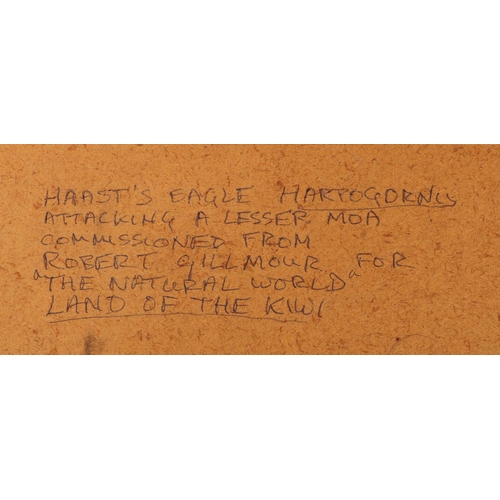 HAAST'S EAGLE HARPOGORNIS
ATTACKING A LESSER MOA
COMMISSIONED FROM
ROBERT GILLMOUR FOR
"THE NATURAL WORLD"
LAND OF THE KIWI